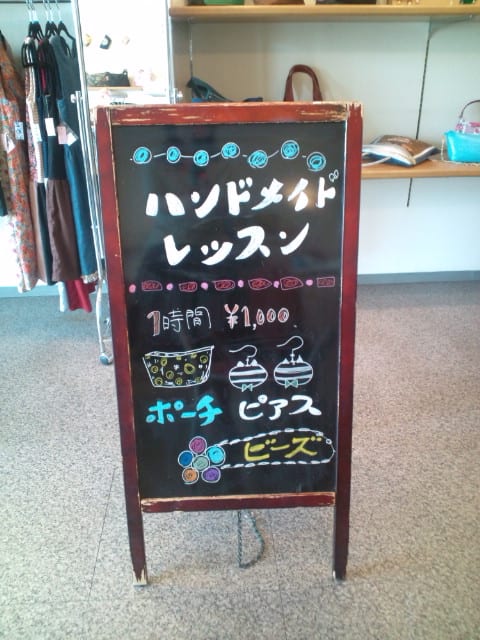 ハンドメイド
レッスン
1時間 ¥1,000
ポーチ ピアス
ビーズ